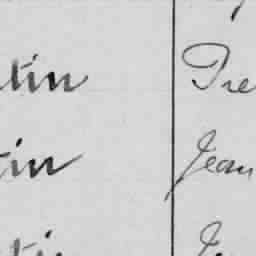 tin Pre
tin Jean